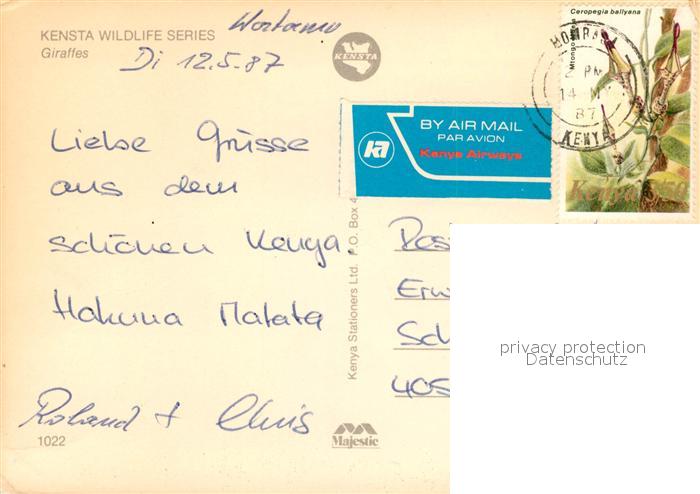 KENSTA WILDLIFE SERIES
Giraffes
Watamu
Di 12.5.87
KENSTA
Ceropegia ballyana
Mtongo
MOMBASA
2 PM
14 M
87
KENYA
Kenya
BY AIR MAIL
PAR AVION
Kenya Airways
Liebe Grüsse
aus dem
schönen Kenya.
Hakuna Matata
Roland + Chris
1022
Kenya Stationers Ltd. P.O. Box 4
Majestic
Erw
Sch
405
privacy protection
Datenschutz